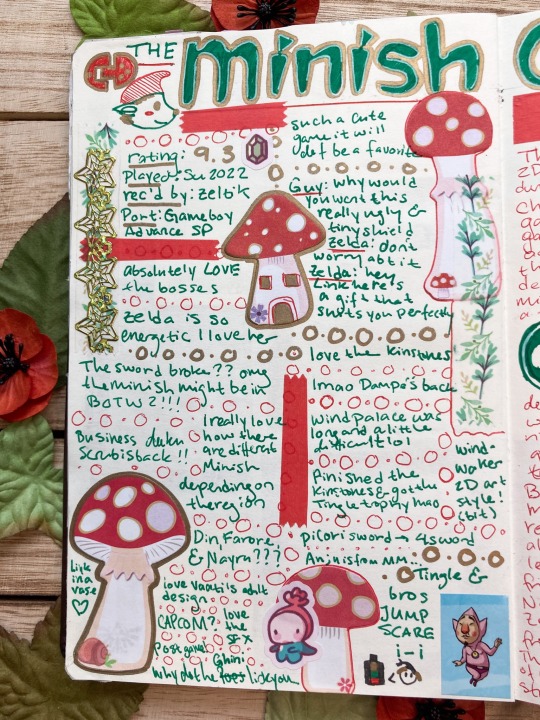 THE minish C
such a cute
game it will
def be a favorite
rating: 9.3
Played: Su 2022
rec'd by: Zeltik
Port: Gameboy
Advance SP
Guy: why would
you want this
really ugly &
tiny shield
Zelda: don't
worry abt it
Zelda: hey
Link here's
a gift that
suits you perfectly
Absolutely LOVE
the bosses
Zelda is so
energetic I love her
love the kinstones
The sword broke?? omg
the minish might be in
BOTW 2!!!
lmao Dampé's back
I really love
how there
are different
Minish
depending on
the region
Wind palace was
long and a little
difficult lol
Business deku
Scrub is back!!
Wind-
Waker
2D art
style!
(bit)
Finished the
Kinstones & got the
Tingle trophy lmao
Din, Farore,
& Nayru???
picori sword → 4 sword
Anju is from MM...
Tingle &
bros
JUMP
SCARE
i-i
Link
in a
vase
love Vaati's adult
design
CAPCOM? love
the
SFX
Post game:
Ghini
why did the
you